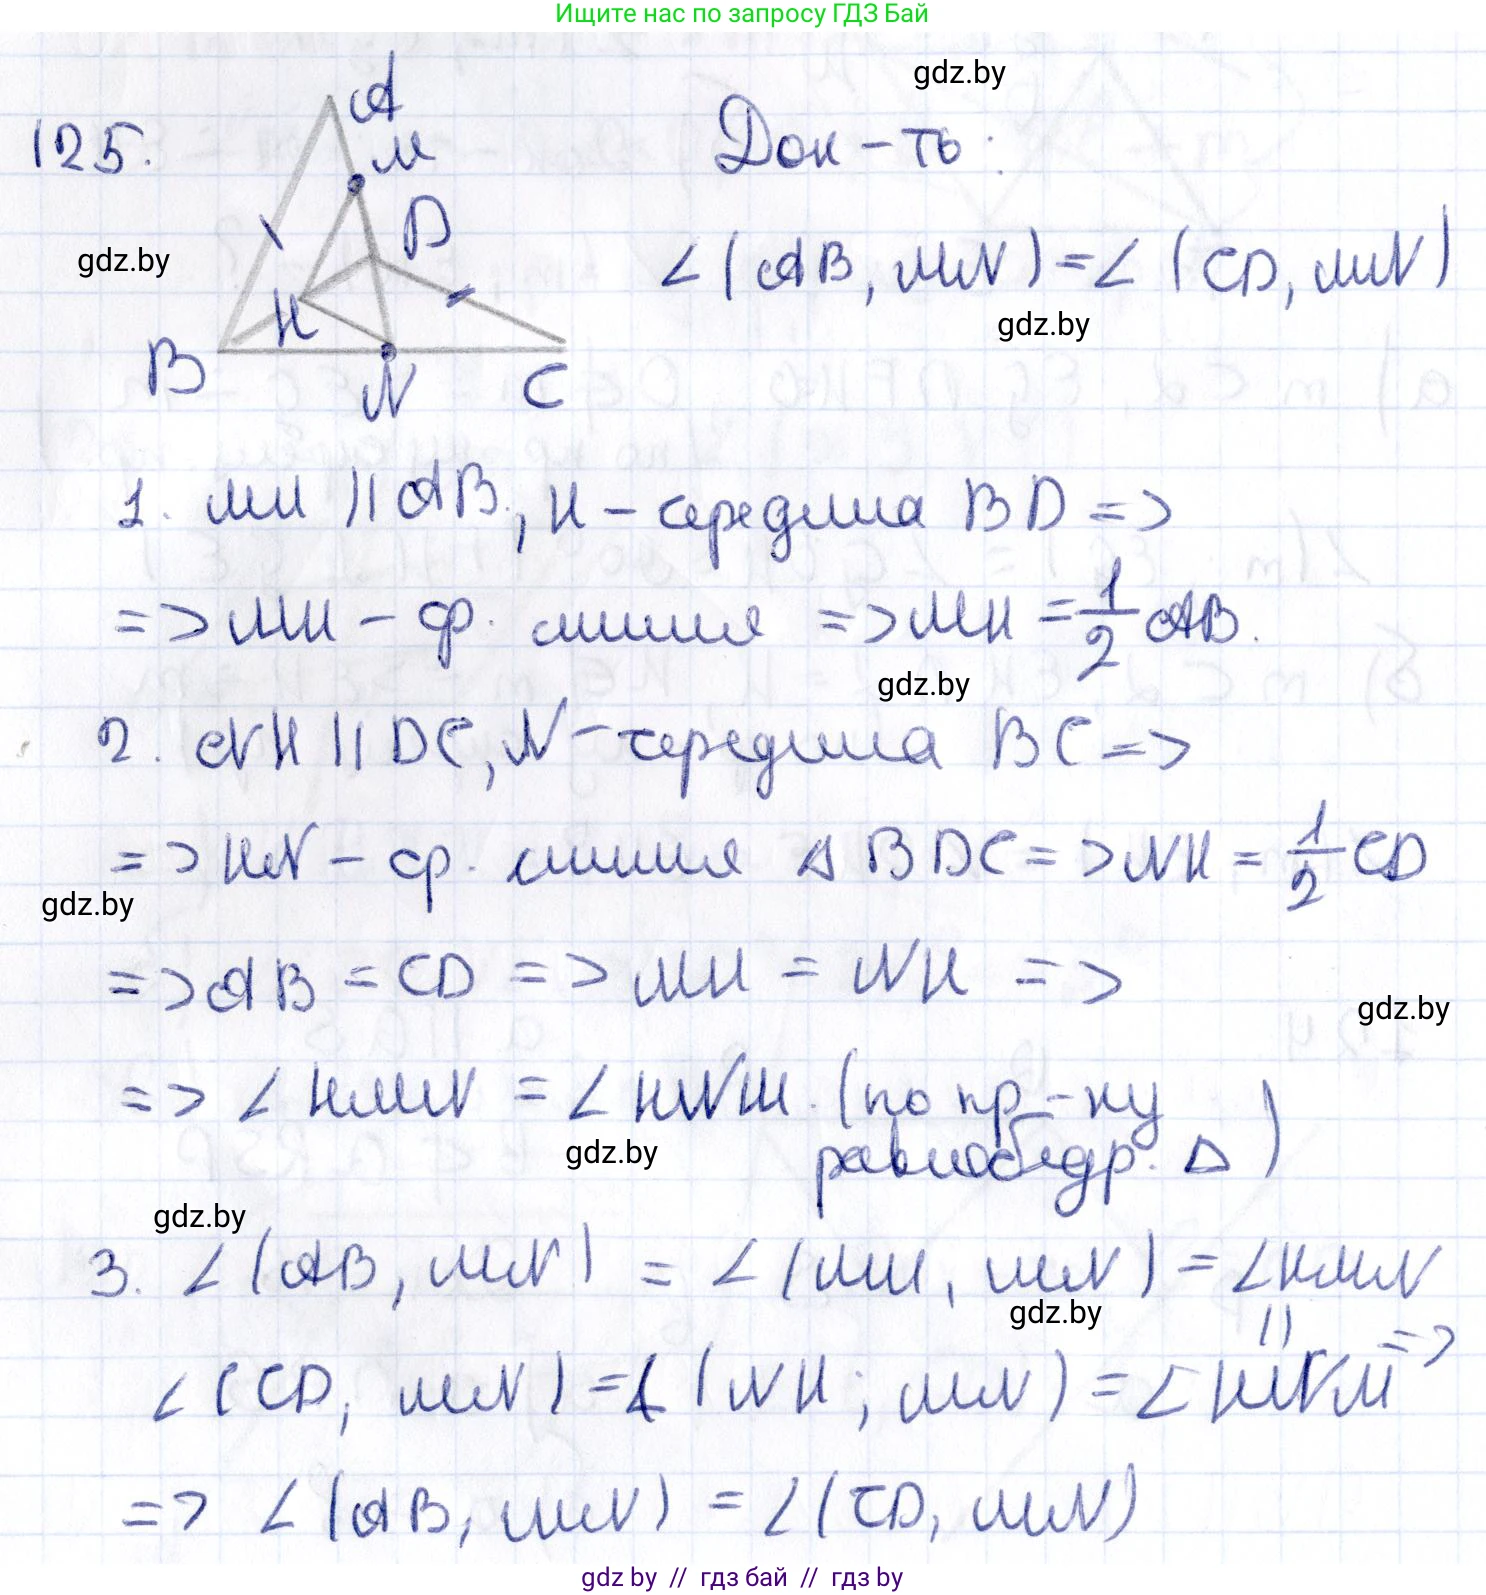 Ищите нас по запросу ГДЗ Бай
gdz.by
125.
A
M
D
H
B
N
C
Док-ть:
gdz.by
∠(AB, MN) = ∠(CD, MN)
gdz.by
1. MH || AB, H - середина BD =>
=> MH - ср. линия => MH = 1/2 AB.
gdz.by
2. NH || DC, N - середина BC =>
=> HN - ср. линия △ BDC => NH = 1/2 CD
gdz.by
=> AB = CD => MH = NH =>
gdz.by
=> ∠HMN = ∠HNM. (по пр-ку
равнобедр. △)
gdz.by
gdz.by
3. ∠(AB, MN) = ∠(MH, MN) = ∠HMN
gdz.by
||
∠(CD, MN) = ∠(NH; MN) = ∠HNM =>
=> ∠(AB, MN) = ∠(CD, MN)
gdz.by // гдз бай // гдз by